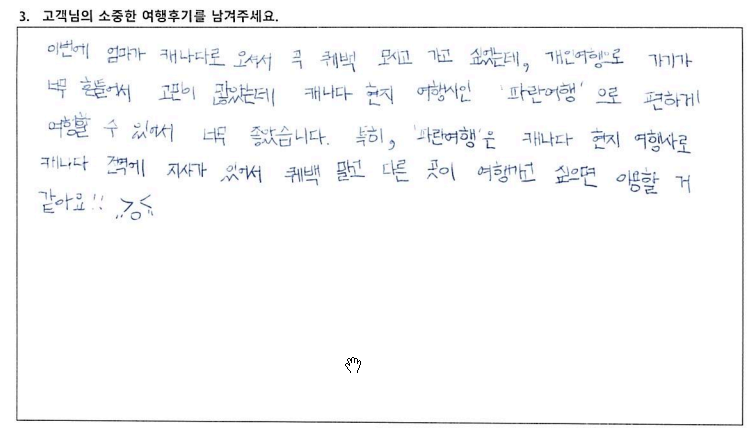 3. 고객님의 소중한 여행후기를 남겨주세요.
이번에 엄마가 캐나다로 오셔서 꼭 퀘백 모시고 가고 싶었는데, 개인여행으로 가기가
너무 힘들어서 고민이 많았는데 캐나다 현지 여행사인 '파란여행'으로 편하게
여행할 수 있어서 너무 좋았습니다. 특히, '파란여행'은 캐나다 현지 여행사로
캐나다 전역에 지사가 있어서 퀘백 말고 다른 곳이 여행가고 싶으면 이용할 거
같아요!! >o<